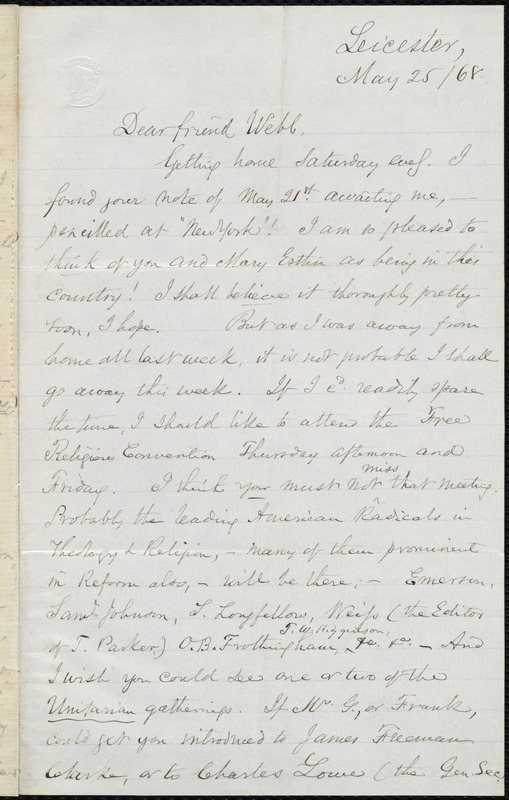 Leicester,
May 25/68.
Dear friend Webb,
Getting home Saturday eveg. I
found your note of May 21st awaiting me, —
pencilled at "New York"! I am so pleased to
think of you and Mary Estlin as being in this
country! I shall believe it thoroughly pretty
soon, I hope. But as I was away from
home all last week, it is not probable I shall
go away this week. If I cd. readily spare
the time, I should like to attend the Free
Religious Convention Thursday afternoon and
Friday. I think you must not miss that meeting.
Probably the leading American Radicals in
Theology & Religion, — many of them prominent
in Reform also, — will be there; — Emerson,
Saml. Johnson, S. Longfellow, Weiss (the Editor
of T. Parker.) O. B. Frothingham, T. W. Higginson, &c. &c. — And
I wish you could see one or two of the
Unitarian gatherings. If Mr. G., or Frank,
could get you introduced to James Freeman
Clarke, or to Charles Lowe (the Gen. Sec.